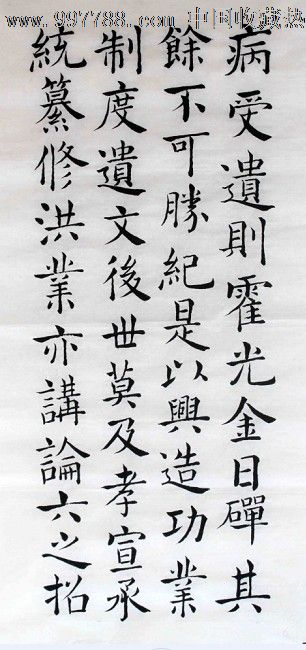 www.997788.com 中国收藏热
病受遺則霍光金日磾其
餘不可勝紀是以興造功業
制度遺文後世莫及孝宣承
統纂修洪業亦講論六之招